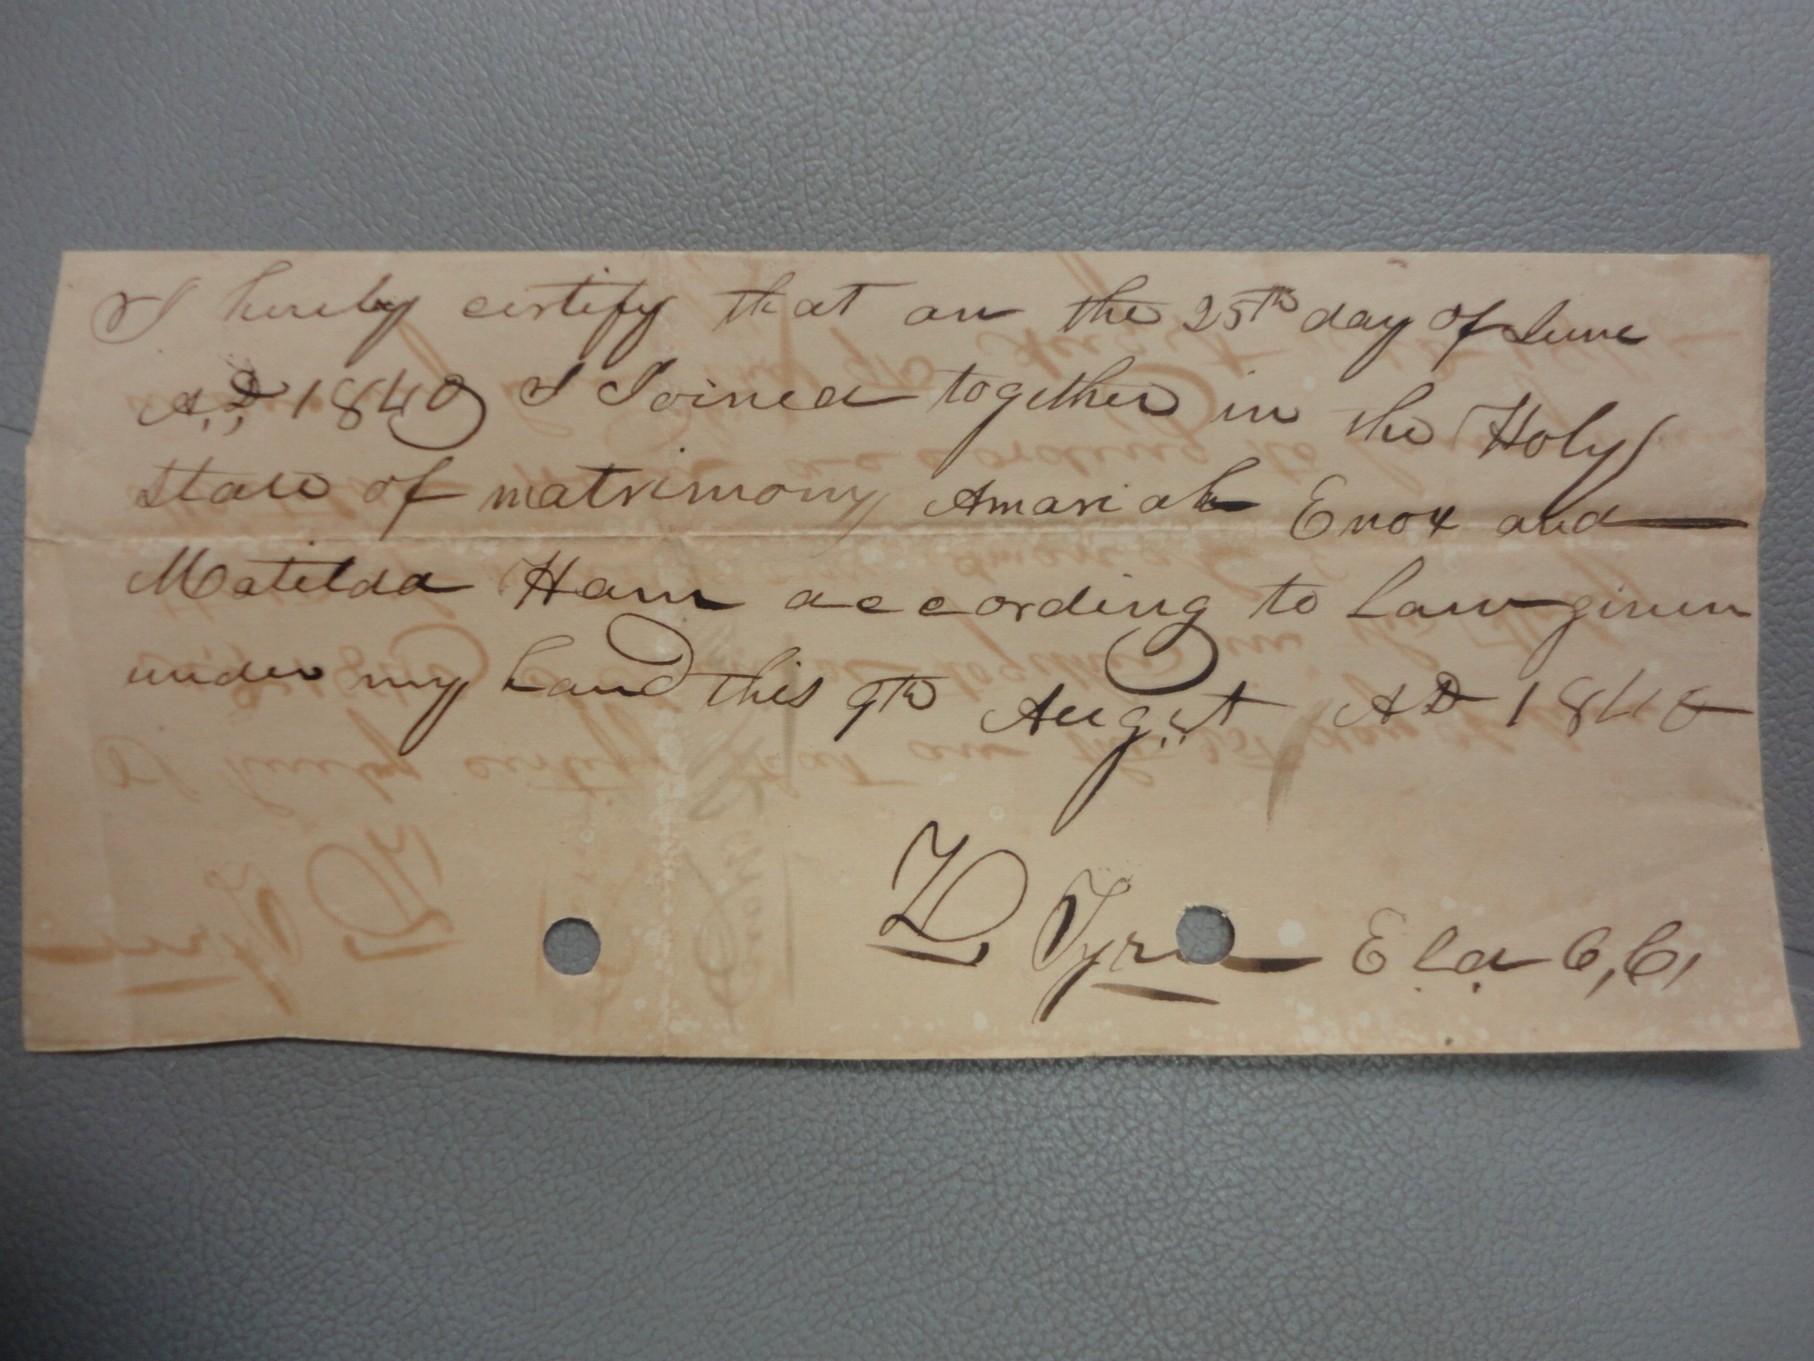 I hereby certify that on the 25th day of June
A,D, 1840 I Joined together in the Holy
State of matrimony Amariah Enox and
Matilda Ham according to Law given
under my hand this 9th Aug,st AD 1840
Eld C, C,